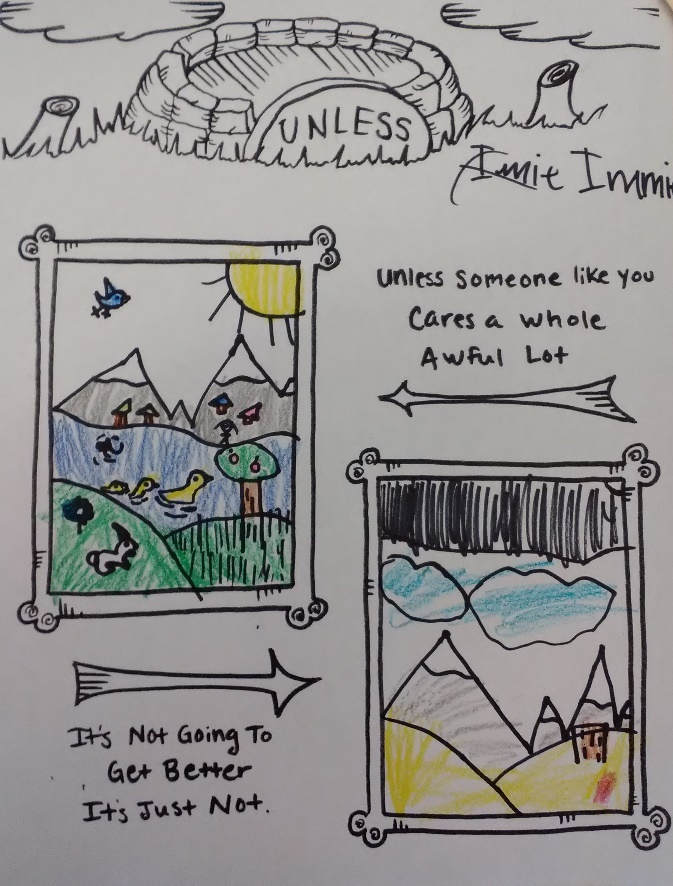 UNLESS
Unless Someone like you
Cares a whole
Awful Lot
It's Not Going To
Get Better
It's Just Not.